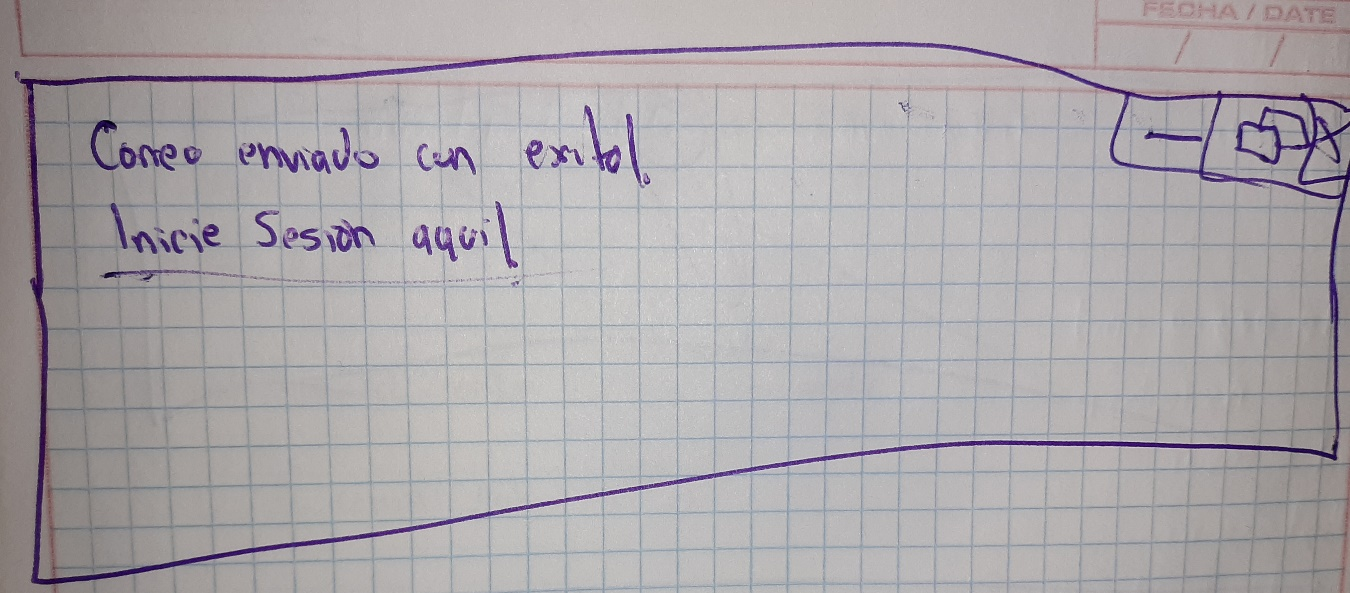 FECHA / DATE
/ /
Correo enviado con exito!
Inicie Sesión aqui!